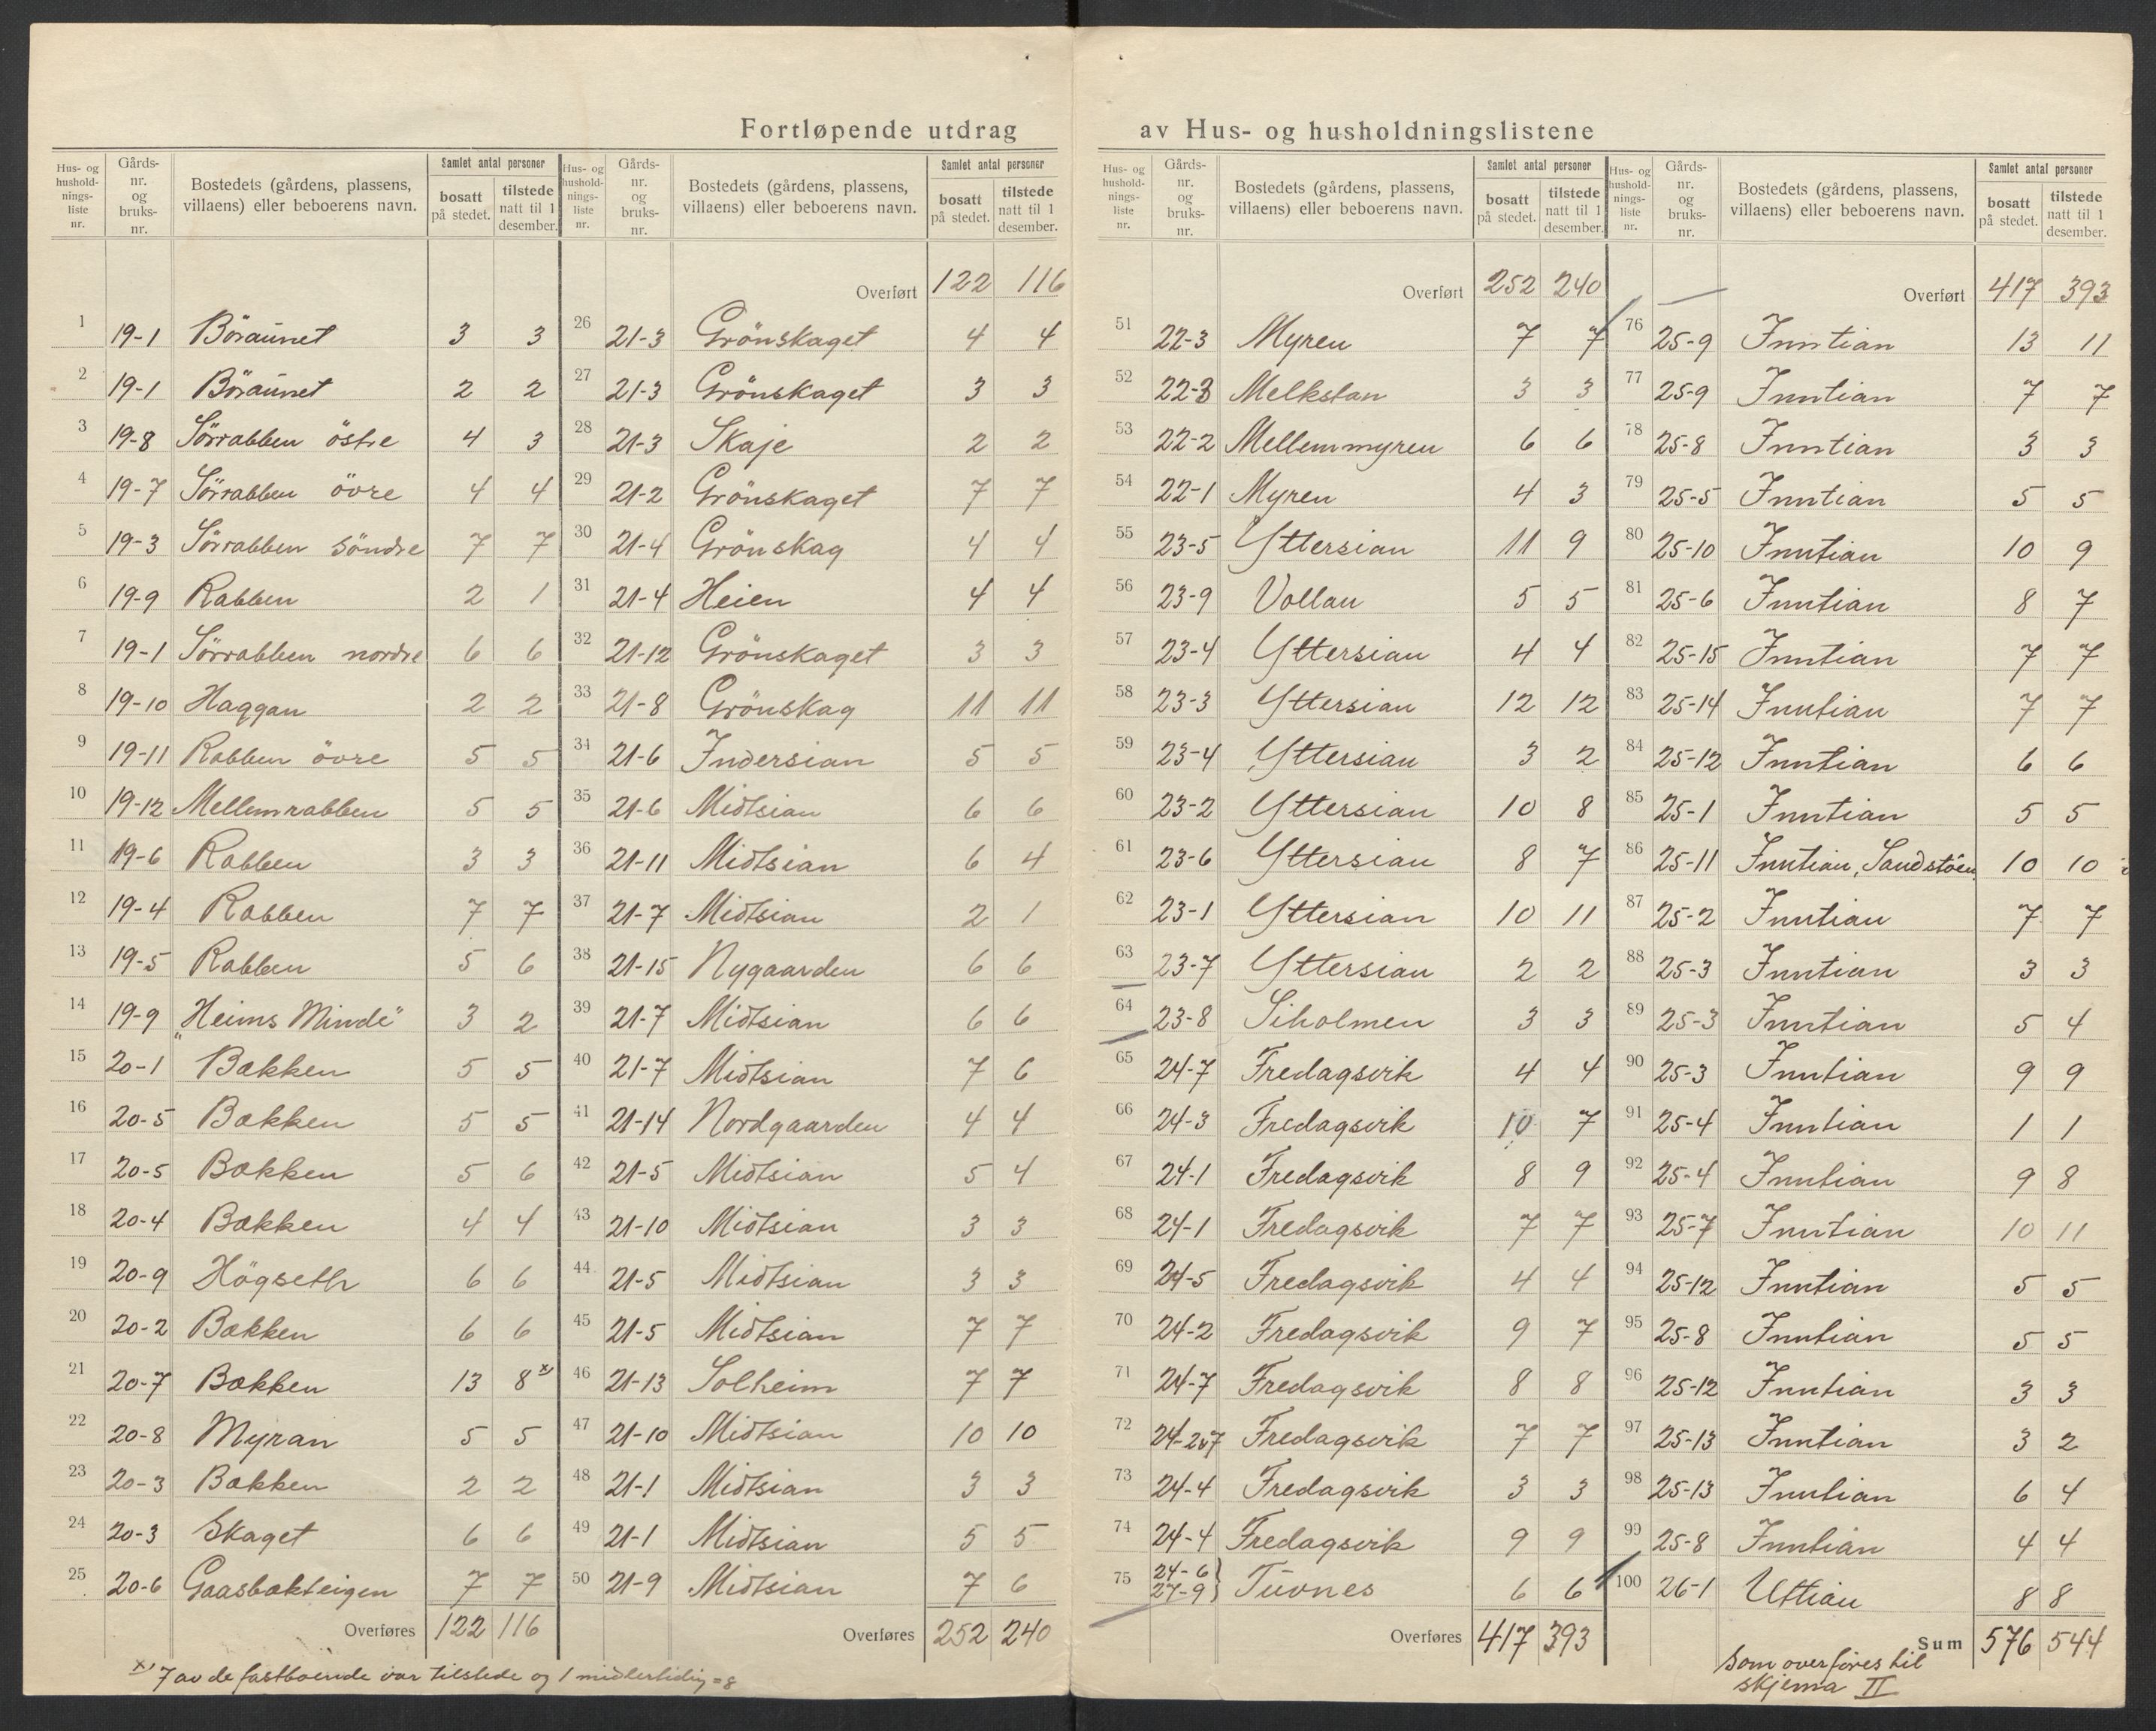 Fortløpende utdrag av Hus- og husholdningslistene
Hus- og husholdnings-liste nr. | Gårds-nr. og bruks-nr. | Bostedets (gårdens, plassens, villaens) eller beboerens navn. | Samlet antal personer | bosatt på stedet. | tilstede natt til 1 desember.
1 19-1 Böraunet 3 3
2 19-1 Böraunet 2 2
3 19-8 Sörrabben östre 4 3
4 19-7 Sörrabben övre 4 4
5 19-3 Sörrabben söndre 7 7
6 19-9 Rabben 2 1
7 19-1 Sörrabben nordre 6 6
8 19-10 Haggan 2 2
9 19-11 Rabben övre 5 5
10 19-12 Mellemrabben 5 5
11 19-6 Rabben 3 3
12 19-4 Rabben 7 7
13 19-5 Rabben 5 6
14 19-9 „Heims Minde" 3 2
15 20-1 Bakken 5 5
16 20-5 Bakken 5 5
17 20-5 Bakken 5 6
18 20-4 Bakken 4 4
19 20-9 Högseth 6 6
20 20-2 Bakken 6 6
21 20-7 Bakken 13 8 x)
22 20-8 Myran 5 5
23 20-3 Bakken 2 2
24 20-3 Skaget 6 6
25 20-6 Gaasbakteigen 7 7
Overføres 122 116
x) 7 av de fastboende var tilstede og 1 midlertidig = 8
Hus- og husholdnings-liste nr. | Gårds-nr. og bruks-nr. | Bostedets (gårdens, plassens, villaens) eller beboerens navn. | Samlet antal personer | bosatt på stedet. | tilstede natt til 1 desember.
Overført 122 116
26 21-3 Grönskaget 4 4
27 21-3 Grönskaget 3 3
28 21-3 Skaje 2 2
29 21-2 Grönskaget 7 7
30 21-4 Grönskag 4 4
31 21-4 Heien 4 4
32 21-12 Grönskaget 3 3
33 21-8 Grönskag 11 11
34 21-6 Indersian 5 5
35 21-6 Midtsian 6 6
36 21-11 Midtsian 6 4
37 21-7 Midtsian 2 1
38 21-15 Nygaarden 6 6
39 21-7 Midtsian 6 6
40 21-7 Midtsian 7 6
41 21-14 Nordgaarden 4 4
42 21-5 Midtsian 5 4
43 21-10 Midtsian 3 3
44 21-5 Midtsian 3 3
45 21-5 Midtsian 7 7
46 21-13 Solheim 7 7
47 21-10 Midtsian 10 10
48 21-1 Midtsian 3 3
49 21-1 Midtsian 5 5
50 21-9 Midtsian 7 6
Overføres 252 240
Hus- og husholdnings-liste nr. | Gårds-nr. og bruks-nr. | Bostedets (gårdens, plassens, villaens) eller beboerens navn. | Samlet antal personer | bosatt på stedet. | tilstede natt til 1 desember.
Overført 252 240
51 22-3 Myren 7 7
52 22-3 Melkstan 3 3
53 22-2 Mellemmyren 6 6
54 22-1 Myren 4 3
55 23-5 Yttersian 11 9
56 23-9 Vollan 5 5
57 23-4 Yttersian 4 4
58 23-3 Yttersian 12 12
59 23-4 Yttersian 3 2
60 23-2 Yttersian 10 8
61 23-6 Yttersian 8 7
62 23-1 Yttersian 10 11
63 23-7 Yttersian 2 2
64 23-8 Siholmen 3 3
65 24-7 Fredagsvik 4 4
66 24-3 Fredagsvik 10 7
67 24-1 Fredagsvik 8 9
68 24-1 Fredagsvik 7 7
69 24-5 Fredagsvik 4 4
70 24-2 Fredagsvik 9 7
71 24-7 Fredagsvik 8 8
72 Fredagsvik 7 7
73 24-4 Fredagsvik 3 3
74 24-4 Fredagsvik 9 9
75 24-6 27-9 } Tuvnes 6 6
Overføres 417 393
Hus- og husholdnings-liste nr. | Gårds-nr. og bruks-nr. | Bostedets (gårdens, plassens, villaens) eller beboerens navn. | Samlet antal personer | bosatt på stedet. | tilstede natt til 1 desember.
Overført 417 393
76 25-9 Inntian 13 11
77 25-9 Inntian 7 7
78 25-8 Inntian 3 3
79 25-5 Inntian 5 5
80 25-10 Inntian 10 9
81 25-6 Inntian 8 7
82 25-15 Inntian 7 7
83 25-14 Inntian 7 7
84 25-12 Inntian 6 6
85 25-1 Inntian 5 5
86 25-11 Inntian, Sandstöen 10 10
87 25-2 Inntian 7 7
88 25-3 Inntian 3 3
89 25-3 Inntian 5 4
90 25-3 Inntian 9 9
91 25-4 Inntian 1 1
92 25-4 Inntian 9 8
93 25-7 Inntian 10 11
94 25-12 Inntian 5 5
95 25-8 Inntian 5 5
96 25-12 Inntian 3 3
97 25-13 Inntian 3 2
98 25-13 Inntian 6 4
99 25-8 Inntian 4 4
100 26-1 Uttian 8 8
Sum 576 544
Som overföres til
skjema II